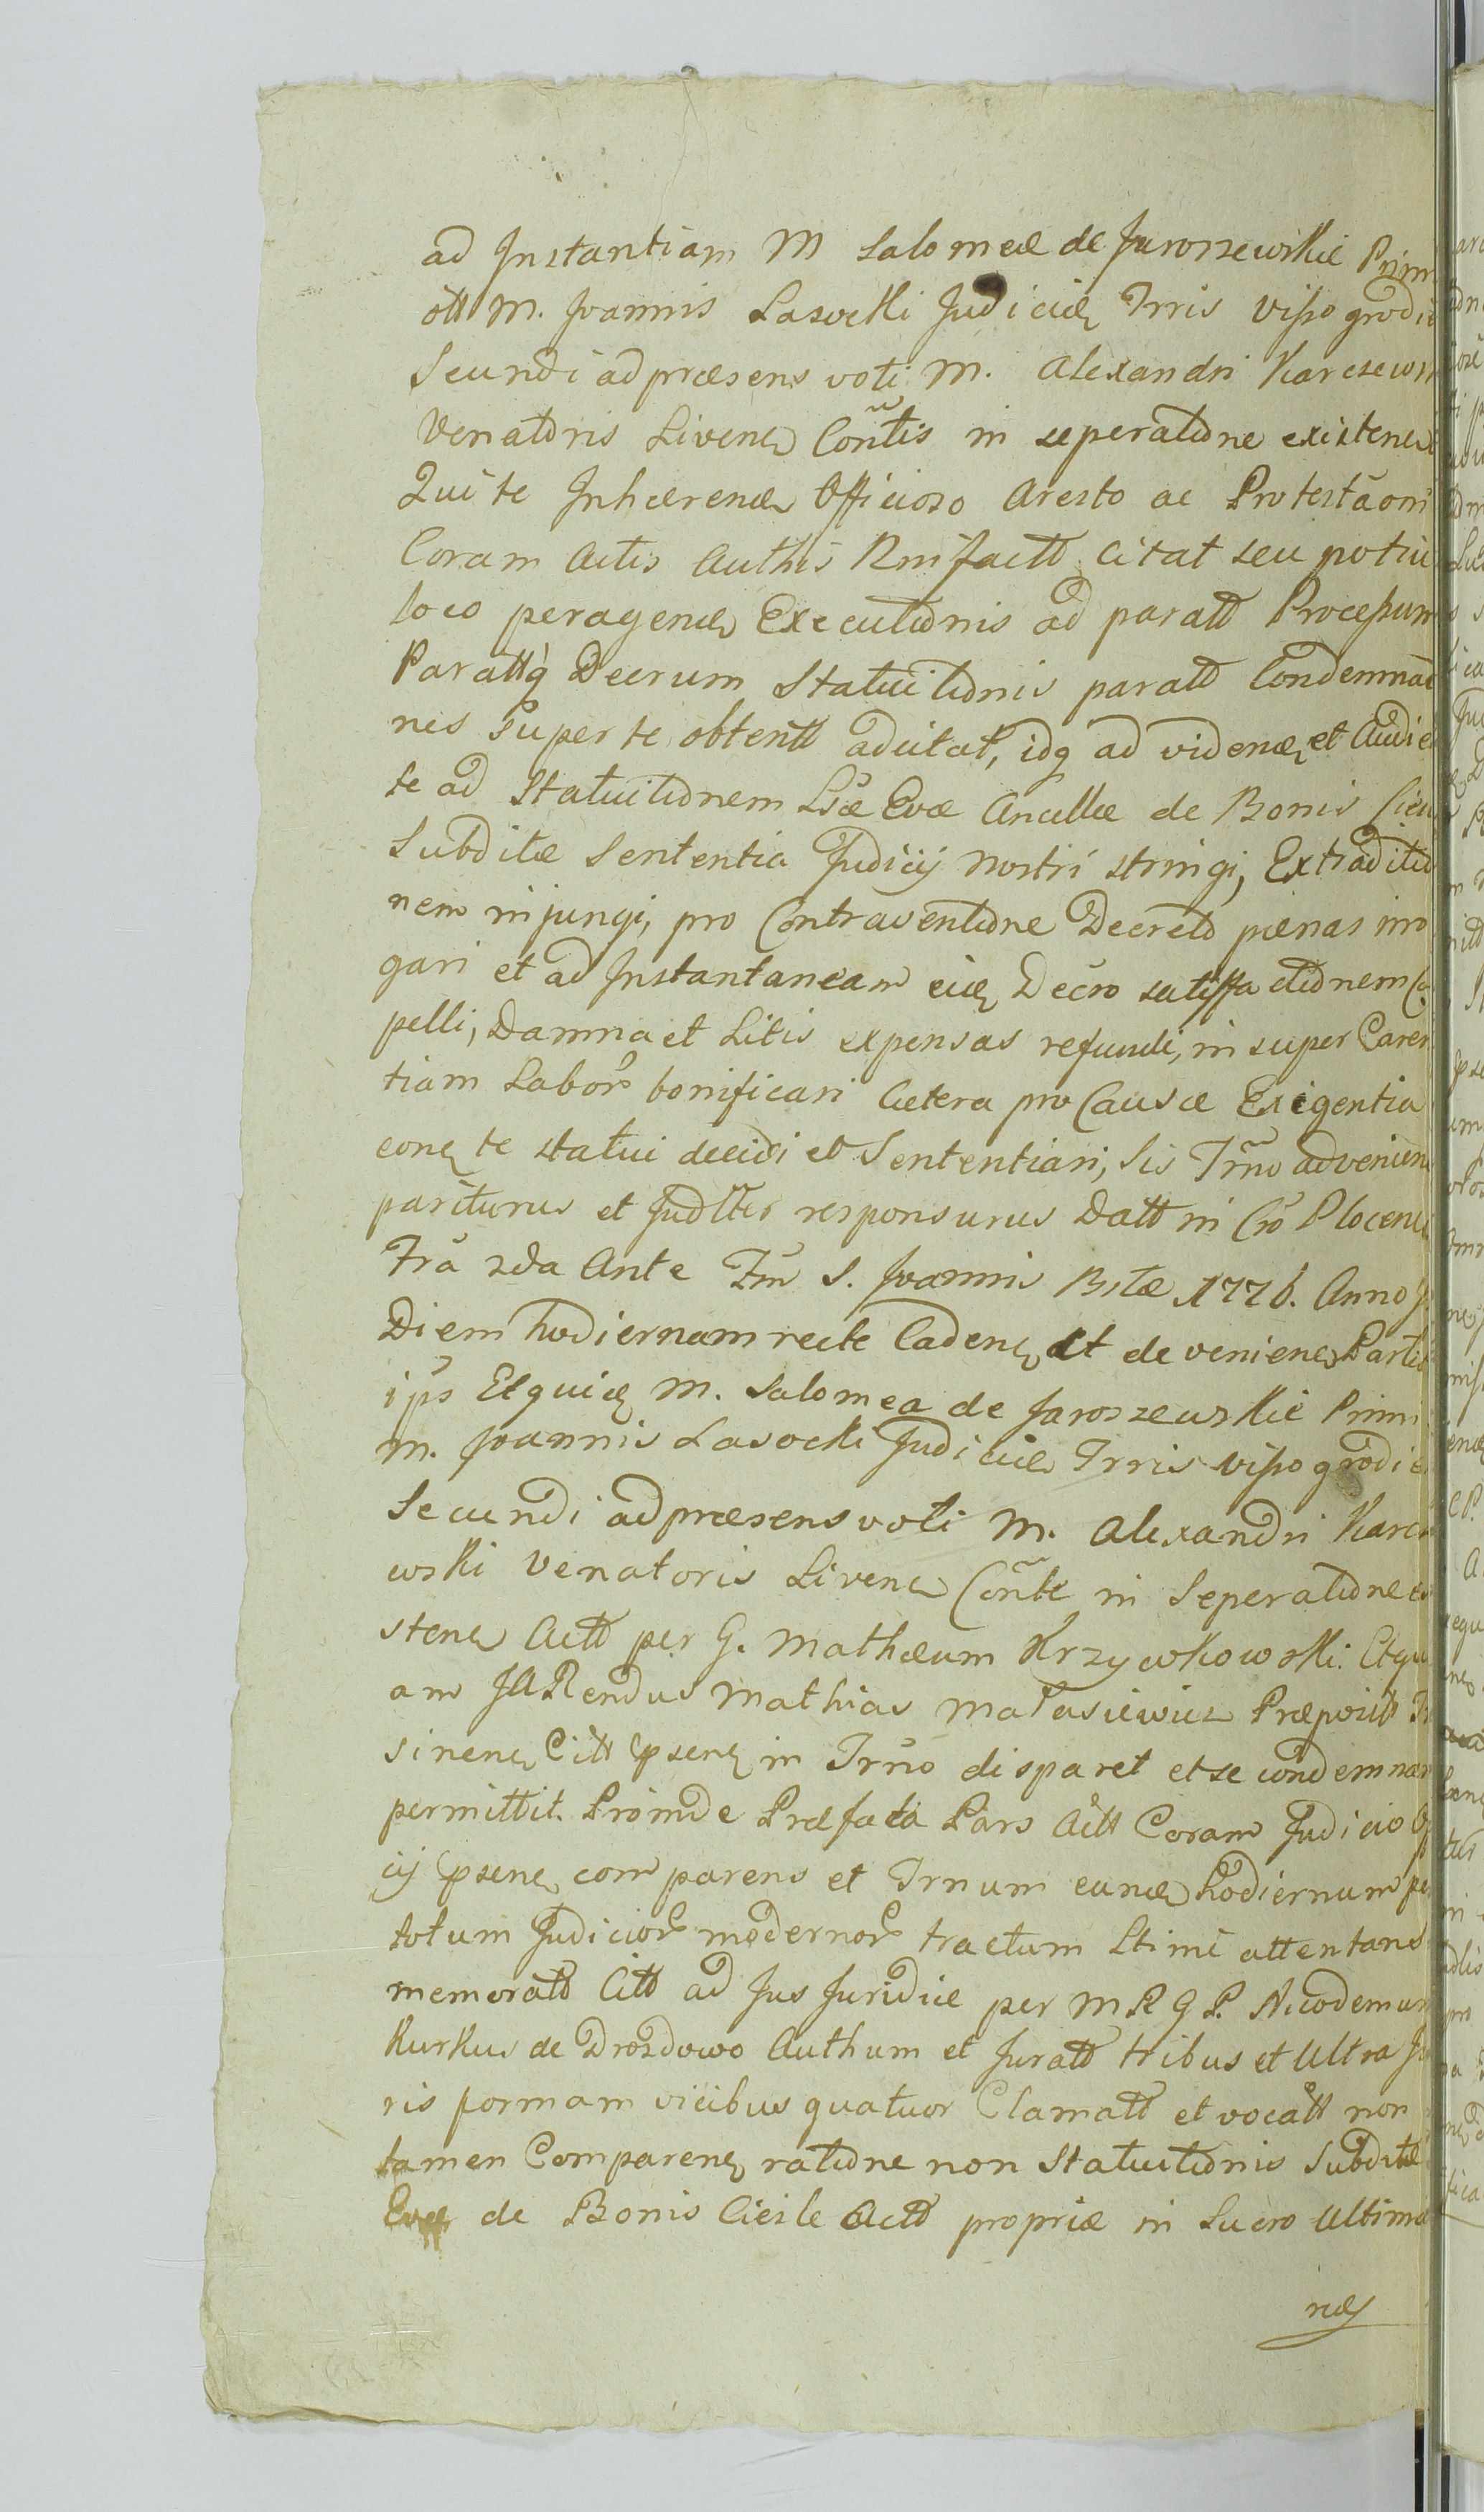 ad Instantiam M Salomeæ de Jaroszewskie Prim
ott M. Joannis Lasocki Judiciæ Trris Vissogrodie
Secundi ad præsens voti M. Alexandri Karczews
Venatoris Livenᵉ Contis in seperatione existenᵉ
Qui te Inhærenᵈ Officioso Aresto ac Protestãoni
Coram Actis Authis Rni factt Citat seu potiu
loco peragenᵈ Executionis ad paratt Processum
Parattq Decrum Statuitionis paratt Condemnao
nes super te obtentt adcitat, idq ad videnᵈ et Audie
te ad Statuitionem Lsæ Evæ Ancillæ de Bonis Cies
Subditæ Sententia Judicij nostri stringi, Extraditio
nem injungi, pro Contraventione Decreto pænas irro
gari et ad Instantaneam ejus Decro satisfactionem Co
pelli, Damna et Litis expensas refundi, in super Caren
tiam Labor bonificari Cætera pro Causæ Exigentia
conᵉ te statui decidi et Sententiari, Sis Trno advenien
pariturus et Judltr responsurus Datt in Cro Plocenᵉ
Fra 2da Ante Fm S. Joannis Bstæ 1776. Anno
Diem hodiernam recte Cadenᵉ et de venienᵉ Partib
ips Exquiᵉ M. Salomea de Jaroszewskie Primi
M. Joannis Lasocki Judiciæ Trris Vissogrodie
Secundi ad præsens voti M. Alexandri Karcz
ewski Venatoris Livenᵉ Conte in Seperatione exi
stenᵉ Actt per G. Mathæum Krzywkowski. Atqu
am JARendus Mathias Matusiewicz Præpositt
sinenᵉ Citt psenᵉ in Trno disparet et se condemnar
permittit. Proinde Præfata Pars Actt Coram Judicio Off
cij psenᵉ comparens et Trnum eunᵈ hodiernum per
totum Judicior modernor tractum Ltime attentand
memoratt Citt ad Jus Juridice per MRGP. Nicodemum
Kurkus de Drozdowo Authum et Juratt tribus et Ultra Ju
ris formam vicibus quatuor Clamatt et vocatt non
tamen Comparenᵉ ratione non Statuitionis Subditæ
Evæ de Bonis Ciesle Actt propriæ in Lucro Ultima